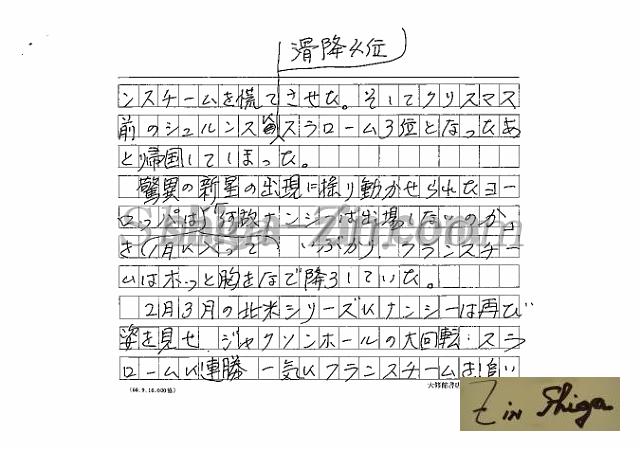 滑降4位
ンスチームを慌てさせた。そしてクリスマス
前のシュルンス スラローム3位となったあ
と帰国してしまった。
驚異の新星の出現に振り動かせられたヨー
ロッパは 何故ナンシーは出場しないのか
1月に入って いぶかり フランスチー
ムはホっと胸をなで降ろしていた。
2月3月の北米シリーズにナンシーは再び
姿を見せ ジャクソンホールの大回転・スラ
ロームに連勝 一気にフランスチームは追い
(66.9.10.000) 大修館
Shiga-Zin.com
Z in Shiga